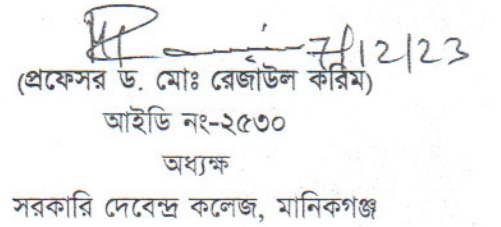 7/12/23
(প্রফেসর ড. মোঃ রেজাউল করিম)
আইডি নং-২৫৩০
অধ্যক্ষ
সরকারি দেবেন্দ্র কলেজ, মানিকগঞ্জ